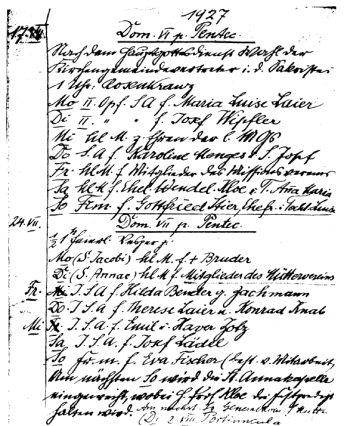 1927
17.VII. Dom. VI p. Pentec.
Nach dem Hauptgottesdienst Wahl der
Kirchengemeindevertreter i. d. Sakristei
1 Uhr: Rosenkranz
Mo II. Opf. S A f. Maria Luise Laier
Di II. " " f. Josef Wipfler
Mi hl. M. z. Ehren der l. M G
Do S. A. f. Karoline Menges u. S. Josef
Fr. hl. M. f. Mitglieder des
Sa hl. M. f. Ehel. Wendel Kloe u. T. Anna Maria
So Frm f. Gottfried Stier, Ehefr.
24. VII. Dom. VII p. Pentec.
½ 1 h feierl. Vesper
Mo (S. Jacobi) hl. M. f. + Bruder
Di (S. Annae) hl. M. f. Mitglieder des Müttervereins
Fr. I. S. A. f. Hilda Bender g. Zachmann
Do I. S. A. f. Therese Laier u. Konrad Knab
Mi I. S. A. f. Emil u. Xaver Zolz
Sa, I. S. A. f. Josef Lädle
So fr. m. f. Eva Fischer (best. v. Mitarbeit.
Am nächsten So wird die St. Annakapelle
eingeweiht, wobei H. Kloe die Festpredigt
halten wird. Am nächst.
(Di 2. VIII Portiuncula